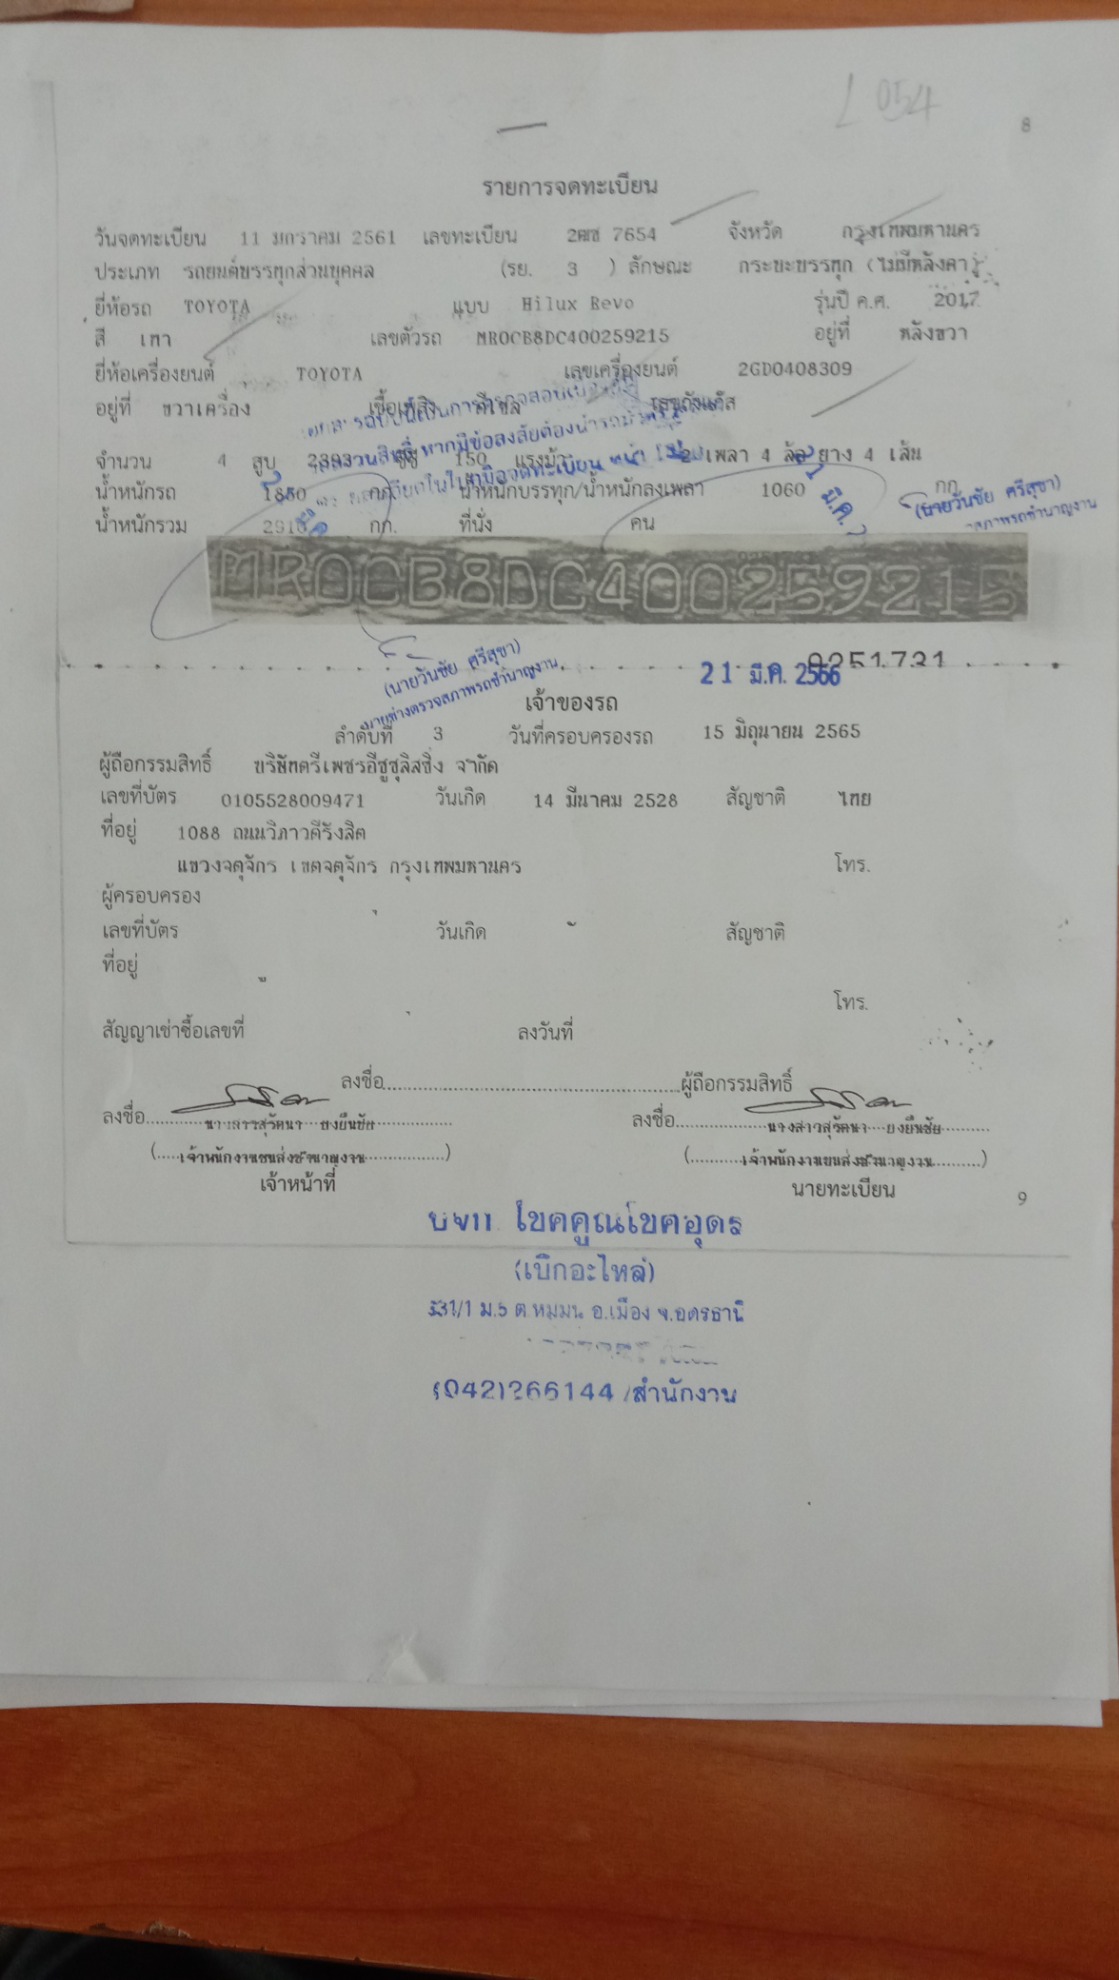 L 054
8
รายการจดทะเบียน
วันจดทะเบียน 11 มกราคม 2561 เลขทะเบียน 7654 จังหวัด กรุงเทพมหานคร
ประเภท รถยนต์บรรทุกส่วนบุคคล (รย. 3 ) ลักษณะ กระบะบรรทุก (ไม่มีหลังคา)
ยี่ห้อรถ TOYOTA แบบ Hilux Revo รุ่นปี ค.ศ. 2017
สี เทา เลขตัวรถ MR0CB8DC400259215 อยู่ที่ หลังขวา
ยี่ห้อเครื่องยนต์ TOYOTA เลขเครื่องยนต์ 2GD0408309
อยู่ที่ ขวาเครื่อง เชื้อเพลิง ดีเซล เลขถังแก๊ส
จำนวน 4 สูบ 2393 ซีซี 150 แรงม้า 2 เพลา 4 ล้อ ยาง 4 เส้น
น้ำหนักรถ 1850 กก. น้ำหนักบรรทุก/น้ำหนักลงเพลา 1060 กก.
น้ำหนักรวม 2910 กก. ที่นั่ง คน
(นายวันชัย ศรีสุขา)
MR0CB8DC400259215
(นายวันชัย ศรีสุขา)
นายช่างตรวจสภาพรถชำนาญงาน
0251731
21 มี.ค. 2566
เจ้าของรถ
ลำดับที่ 3 วันที่ครอบครองรถ 15 มิถุนายน 2565
ผู้ถือกรรมสิทธิ์ บริษัทตรีเพชรอีซูซุลิสซิ่ง จำกัด
เลขที่บัตร 0105528009471 วันเกิด 14 มีนาคม 2528 สัญชาติ ไทย
ที่อยู่ 1088 ถนนวิภาวดีรังสิต
แขวงจตุจักร เขตจตุจักร กรุงเทพมหานคร โทร.
ผู้ครอบครอง
เลขที่บัตร วันเกิด สัญชาติ
ที่อยู่
โทร.
สัญญาเช่าซื้อเลขที่ ลงวันที่
ลงชื่อ ผู้ถือกรรมสิทธิ์
ลงชื่อ นางสาวสุรัตนา ยงยืนชัย ลงชื่อ นางสาวสุรัตนา ยงยืนชัย
(เจ้าพนักงานขนส่งชำนาญงาน) (เจ้าพนักงานขนส่งชำนาญงาน)
เจ้าหน้าที่ นายทะเบียน
9
บจก. โชคคูณโชคอุดร
(เบิกอะไหล่)
331/1 ม.5 ต.หมูม่น อ.เมือง จ.อุดรธานี
(042)266144 /สำนักงาน